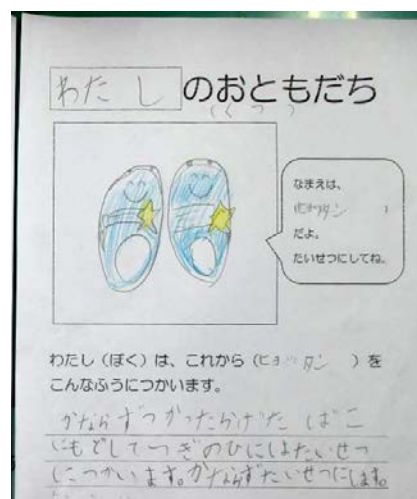 わたし のおともだち
(くつ)
なまえは、
だよ。
たいせつにしてね。
わたし(ぼく)は、これから( )を
こんなふうにつかいます。
かならずつかったらげたばこ
にもどしてつぎのひにはたいせつ
につかいます。かならずたいせつにします。